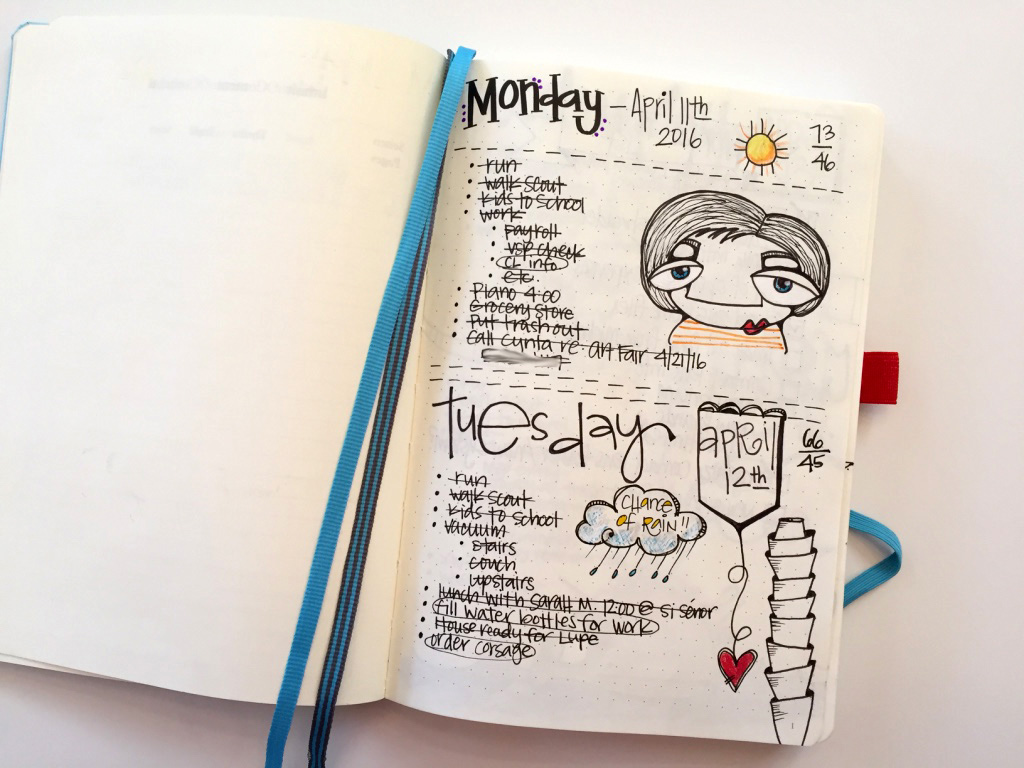 Monday – April 11th
2016
73
46
• run
• walk scout
• kids to school
• work
• payroll
• VSP check
• CL info
• etc.
• Piano 4:00
• Grocery store
• Put trash out
• Call Cynta re: Art Fair 4/21/16
Tuesday
April
12th
66
45
• run
• walk scout
• kids to school
• vacuum
• stairs
• couch
• upstairs
• lunch with Sarah M. 12:00 @ Si Sénor
• fill water bottles for work
• House ready for Lupe
• order corsage
Chance
of Rain!!